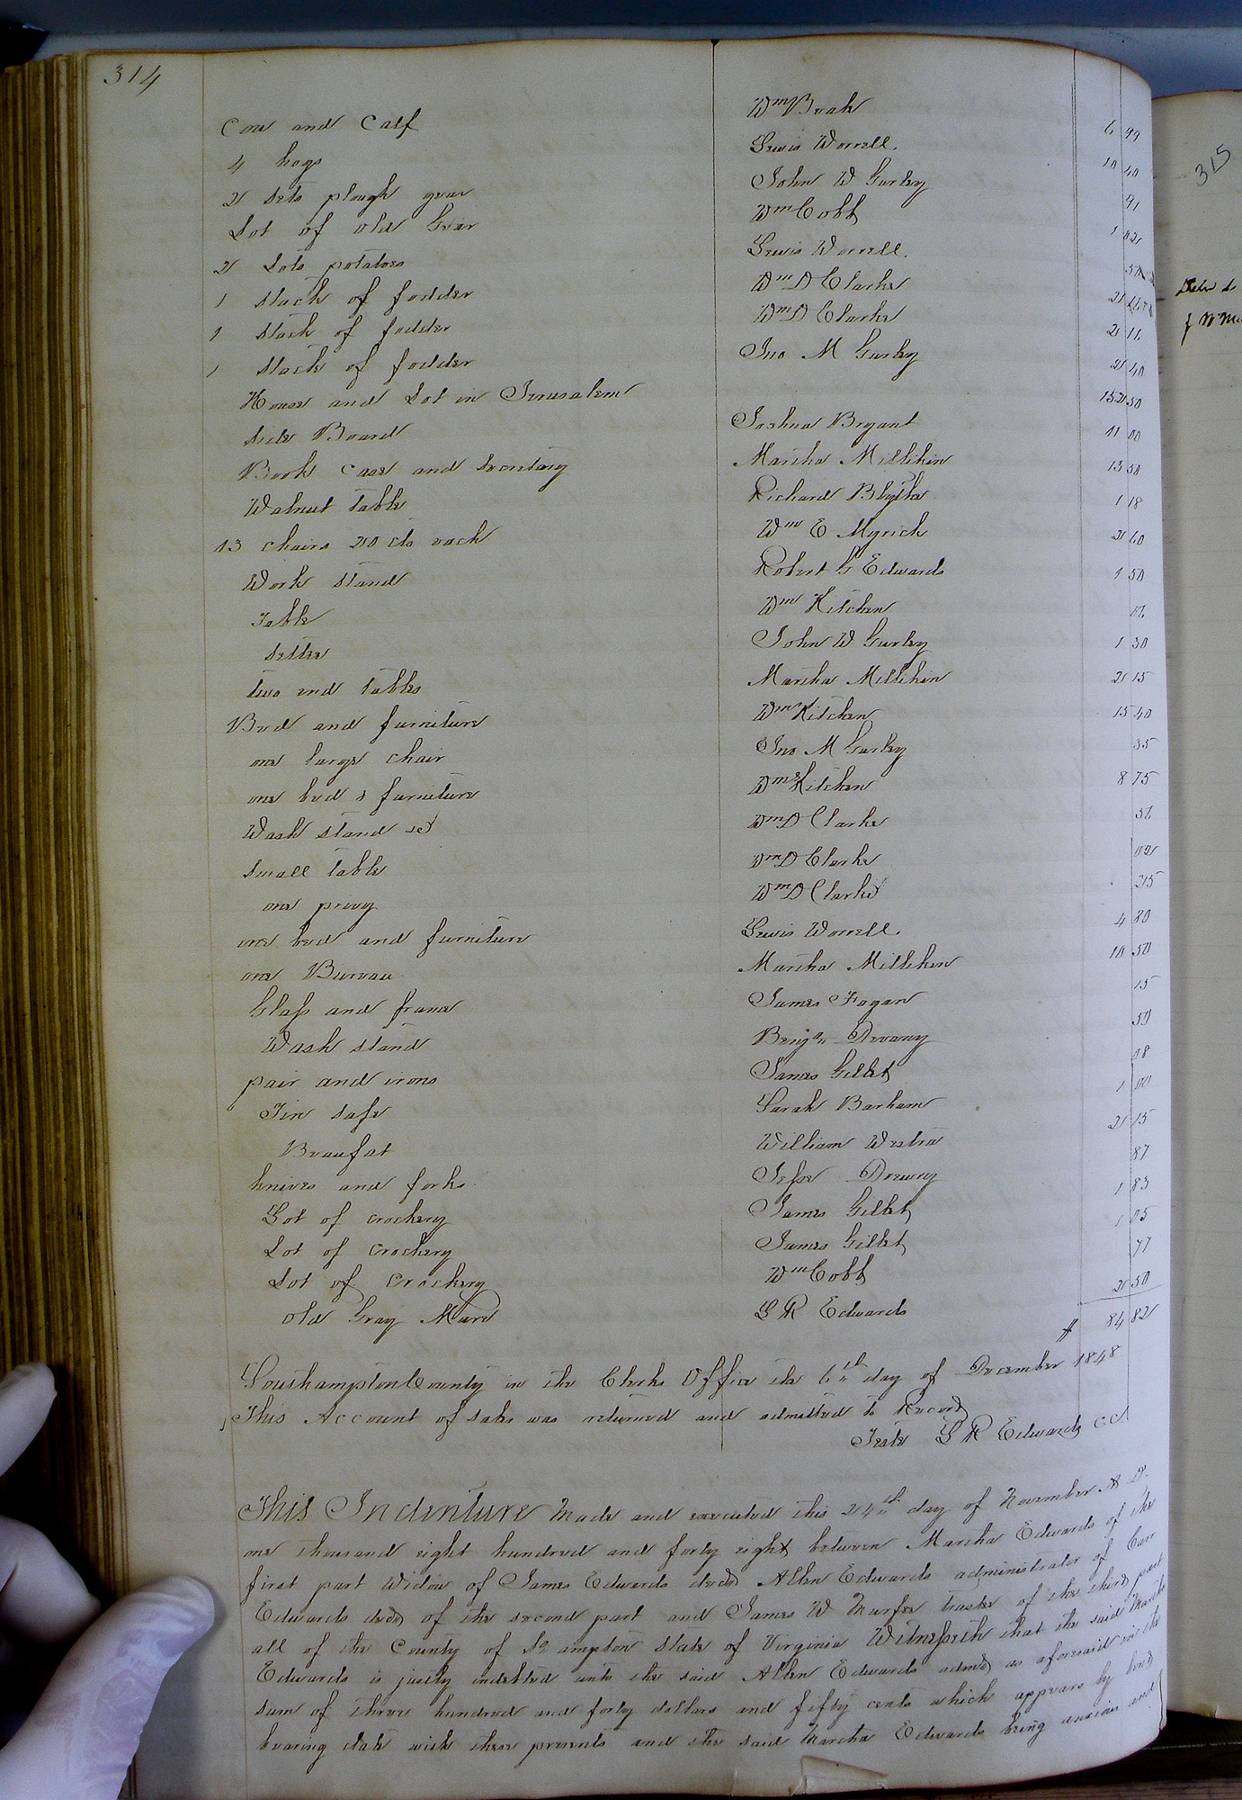 314
Cow and Calf Wm Beal 6 99
4 hogs Lewis Worrell. 10 40
2 sets plough gear John W Gurley 91
Lot of old Gear Wm Cobb 1 02
2 Lots potatoes Lewis Worrell. 50
1 stack of fodder Wm D Clarke 2
1 stack of fodder Wm D Clarke 2 11
1 stack of fodder Jno M Gurley 2 40
House and Lot in Jerusalem 152 50
side Board Joshua Bryant 11 00
Book case and secretary Martha Millikin 13 50
Walnut table Richard Blythe 1 18
13 chairs 20 cts each Wm E Myrick 2 60
Work stand Robert G Edwards 1 50
Table Wm Kitchen
settee John W Gurley 1 30
two end tables Martha Millikin 2 15
Bed and furniture Wm Kitchen 15 40
one large chair Jno M Gurley 35
one bed & furniture Wm Kitchen 8 75
Wash stand set Wm D Clarke 51
small table Wm D Clarke 02
one privy Wm D Clarke 25
one bed and furniture Lewis Worrell. 4 80
one Bureau Martha Millikin 10 50
Glass and frame James Fagan 15
Wash stand Benjn Drewry 50
pair and irons James Gillet 08
Tin safe Sarah Barham 1 00
Beaufat William Westra 2 15
knives and forks Jesse Drewry 87
Lot of crockery James Gillet 1 83
Lot of Crockery James Gillet 1 05
Lot of Crockery Wm Cobb 77
old Gray Mare L R Edwards 2 50
$ 84 82
Southampton County in the Clerks Office the 6th day of December 1848
This Account of sales was returned and admitted to Record
Teste L R Edwards C.C.
This Indenture Made and executed this 24th day of November A D.
one thousand eight hundred and forty eight between Martha Edwards of the
first part Widow of James Edwards decd Allen Edwards administrator of
Edwards decd of the second part and James W Murfee trustee of the third part
all of the County of So ampton State of Virginia Witnesseth that the said Martha
Edwards is justly indebted unto the said Allen Edwards admr as aforesaid in the
sum of three hundred and forty dollars and fifty cents which appears by bond
bearing date with these presents and the said Martha Edwards being anxious and
315